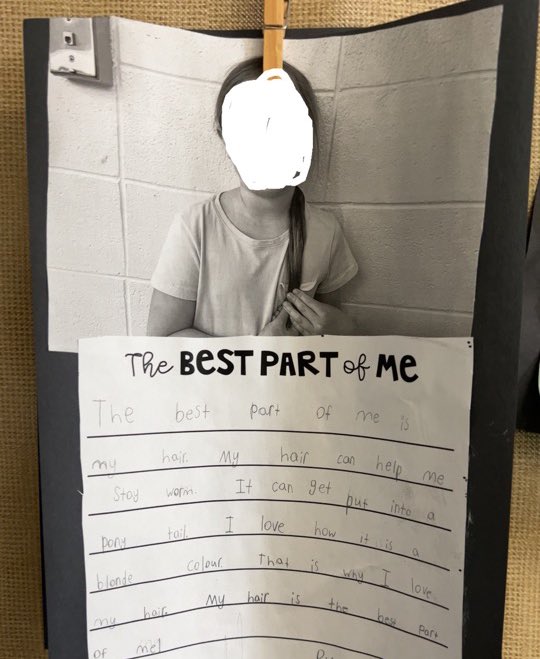 The BEST PART of ME
The best part of me is
my hair. My hair can help me
Stay worm. It can get put into a
pony tail. I love how it is a
blonde colour. That is why I love
my hair. My hair is the best part
of me!